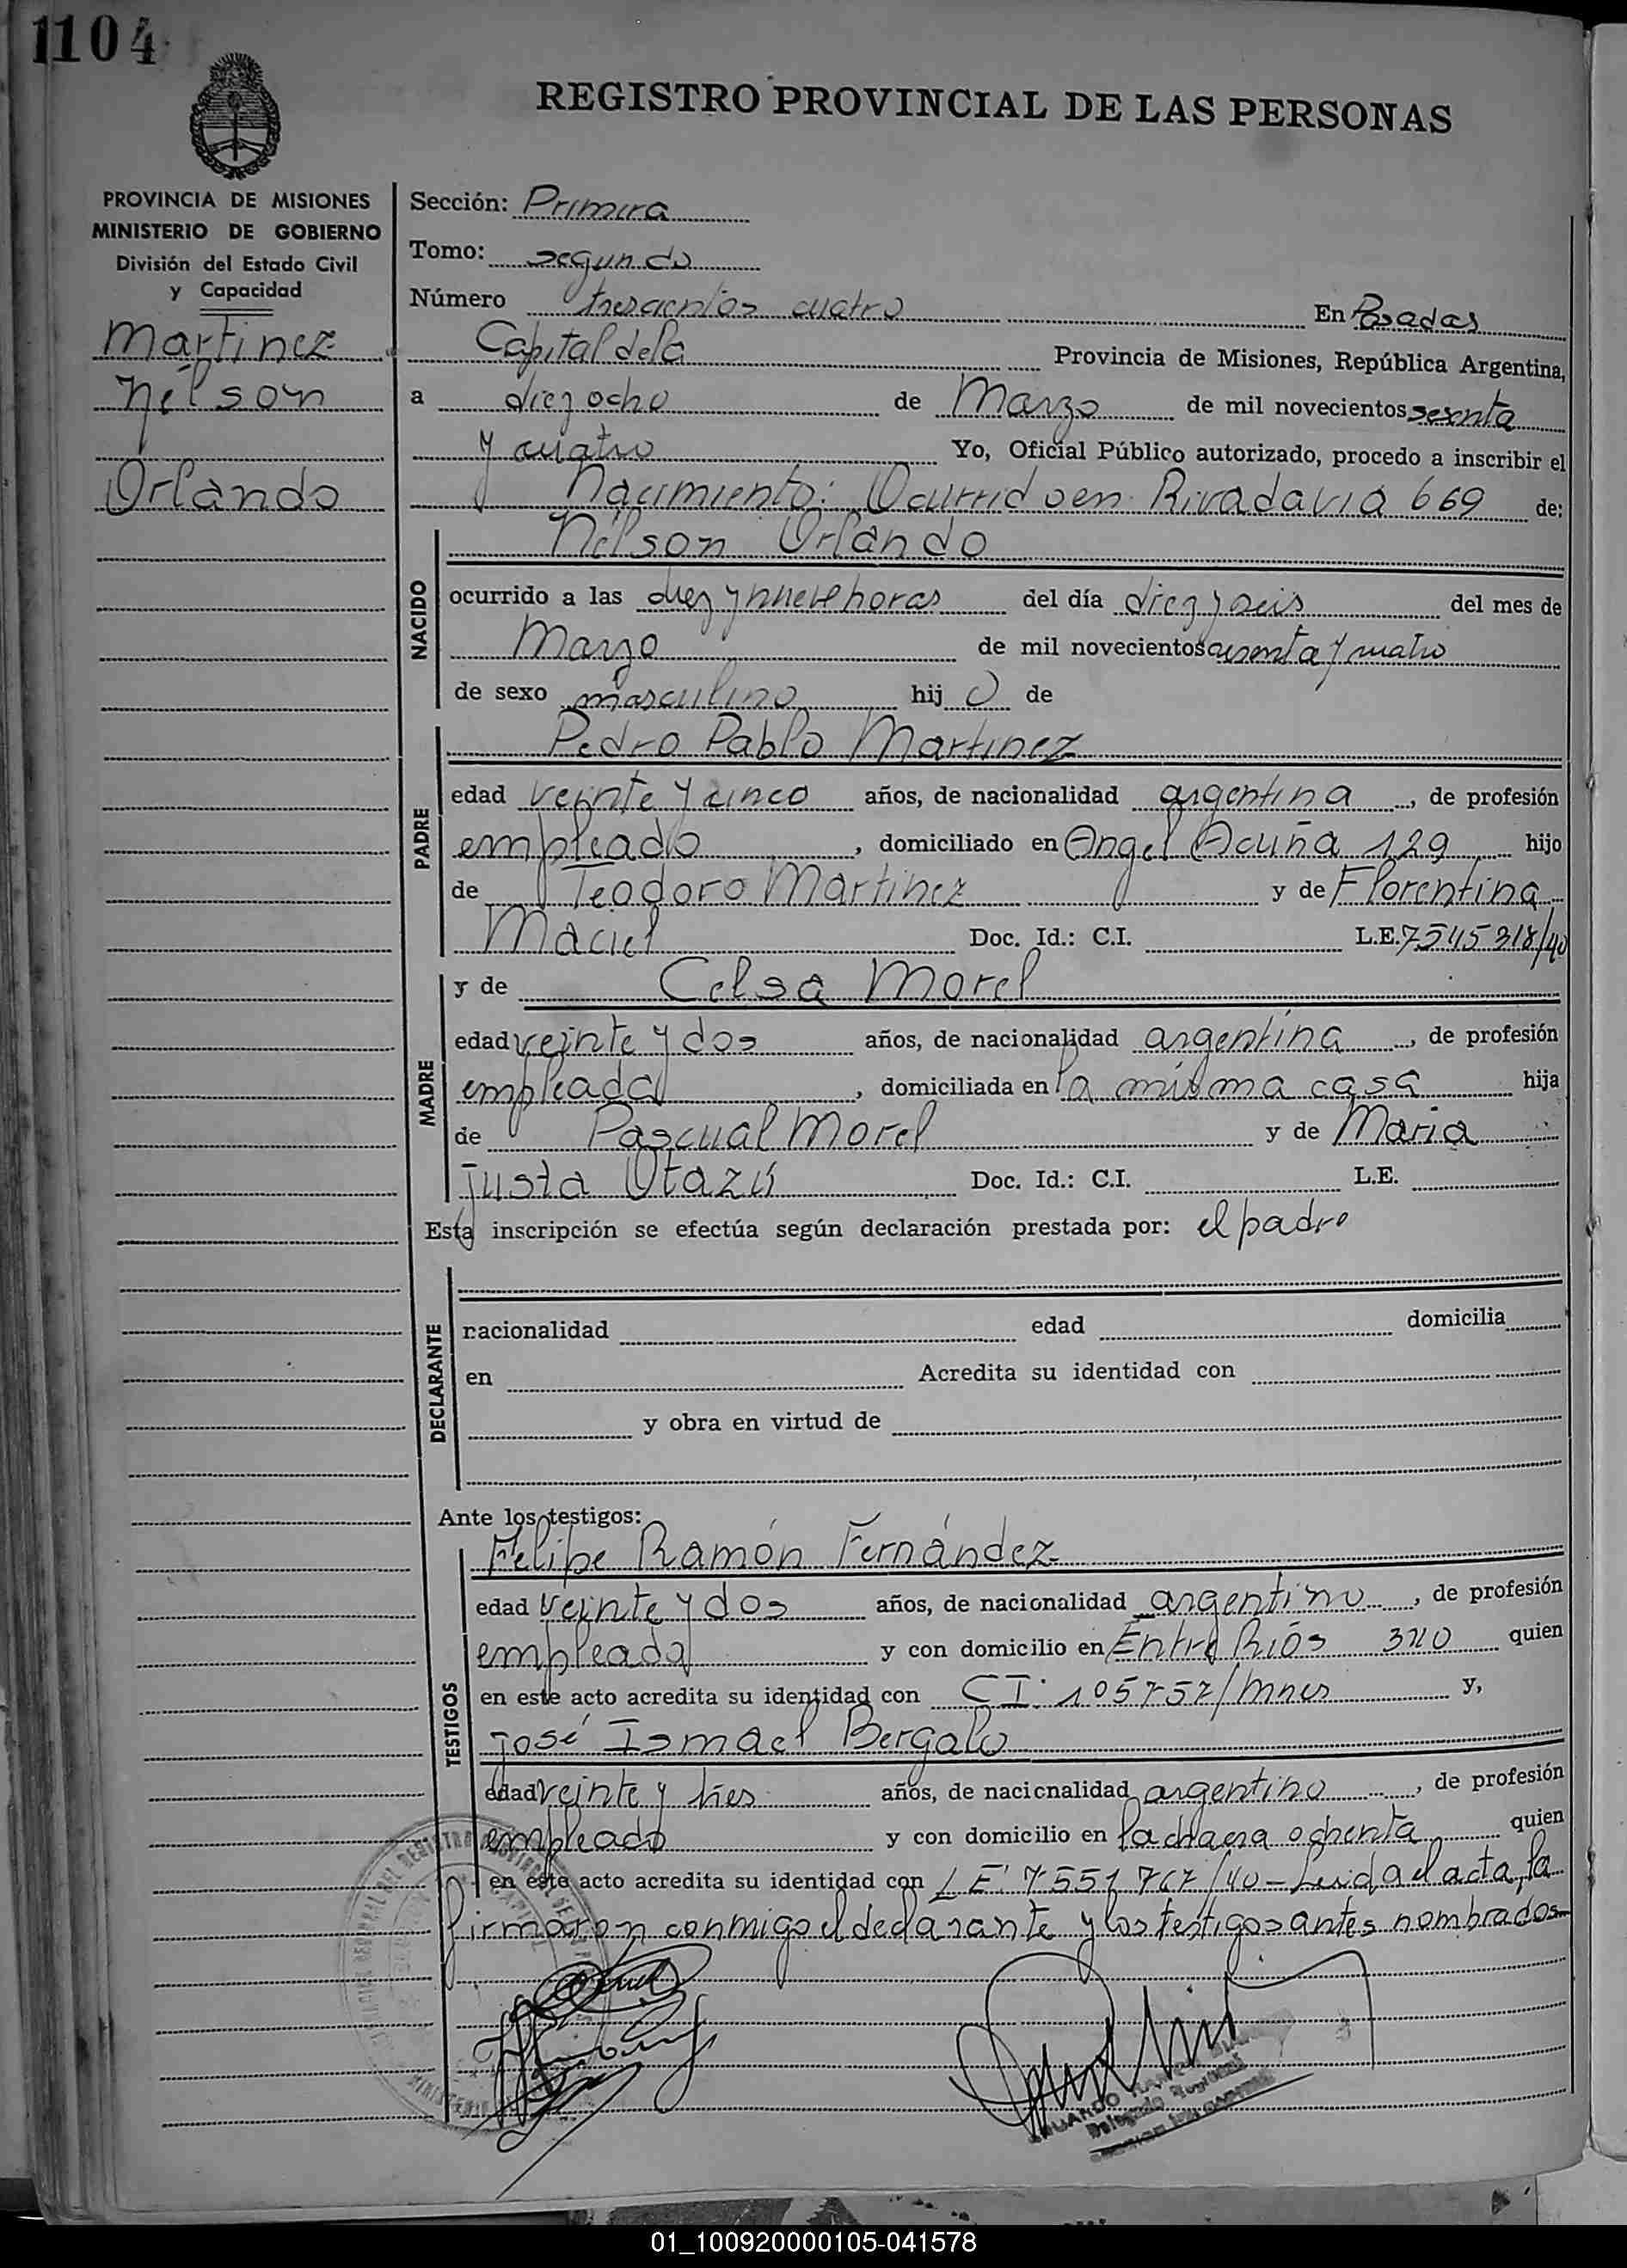 1104
REGISTRO PROVINCIAL DE LAS PERSONAS
PROVINCIA DE MISIONES
MINISTERIO DE GOBIERNO
División del Estado Civil
y Capacidad
Martinez
Nélson
Orlando
Sección: Primera
Tomo: segundo
Número trescientos cuatro En Posadas
Capital de la Provincia de Misiones, República Argentina,
a diez ocho de Marzo de mil novecientos sesenta
y cuatro Yo, Oficial Público autorizado, procedo a inscribir el
Nacimiento: Ocurrido en Rivadavia 669 de:
NACIDO
Nélson Orlando
ocurrido a las diez y nueve horas del día diez y seis del mes de
Marzo de mil novecientos sesenta y cuatro
de sexo masculino hij o de
PADRE
Pedro Pablo Martinez
edad veinte y cinco años, de nacionalidad argentina, de profesión
empleado, domiciliado en Angel Acuña 129 hijo
de Teodoro Martinez y de Florentina
Maciel Doc. Id.: C.I. L.E. 7545318/40
MADRE
y de Celsa Morel
edad veinte y dos años, de nacionalidad argentina, de profesión
empleada, domiciliada en la misma casa hija
de Pascual Morel y de Maria
Justa Otazú Doc. Id.: C.I. L.E.
Esta inscripción se efectúa según declaración prestada por: el padre
DECLARANTE
nacionalidad edad domicilia
en Acredita su identidad con
y obra en virtud de
Ante los testigos:
TESTIGOS
Felipe Ramón Fernández
edad veinte y dos años, de nacionalidad argentino, de profesión
empleado y con domicilio en Entre Ríos quien
en este acto acredita su identidad con CI: 105757/mnes y,
José Ismael Bergalo
edad veinte y tres años, de nacicnalidad argentino, de profesión
empleado y con domicilio en la chacra ochenta quien
en este acto acredita su identidad con LE: 7551767/40 - Leida el acta, la
firmaron conmigo el declarante y los testigos antes nombrados
Delegado Regional
01_100920000105-041578